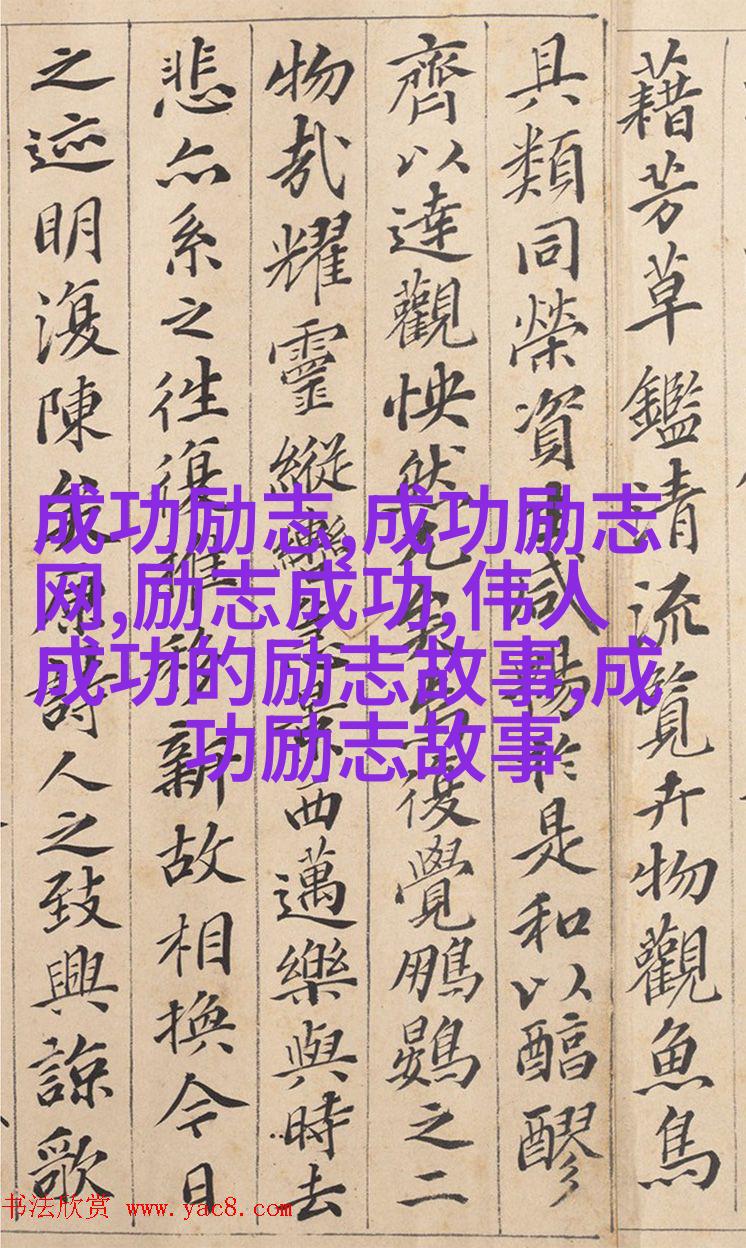 藉芳草鑑清流覽卉物觀魚鳥
具類同榮資生咸暢於是和以醇醪
齊以達觀怏然兀矣焉復覺鵬鷃之二
物哉耀靈縱轡急景西邁樂與時去
悲亦系之徃復推移新故相換今日
之迹明復陳矣原詩人之致興諒歌
成功励志,成功励志
网,励志成功,伟人
成功的励志故事,成
功励志故事
书法欣赏 www.yac8.com